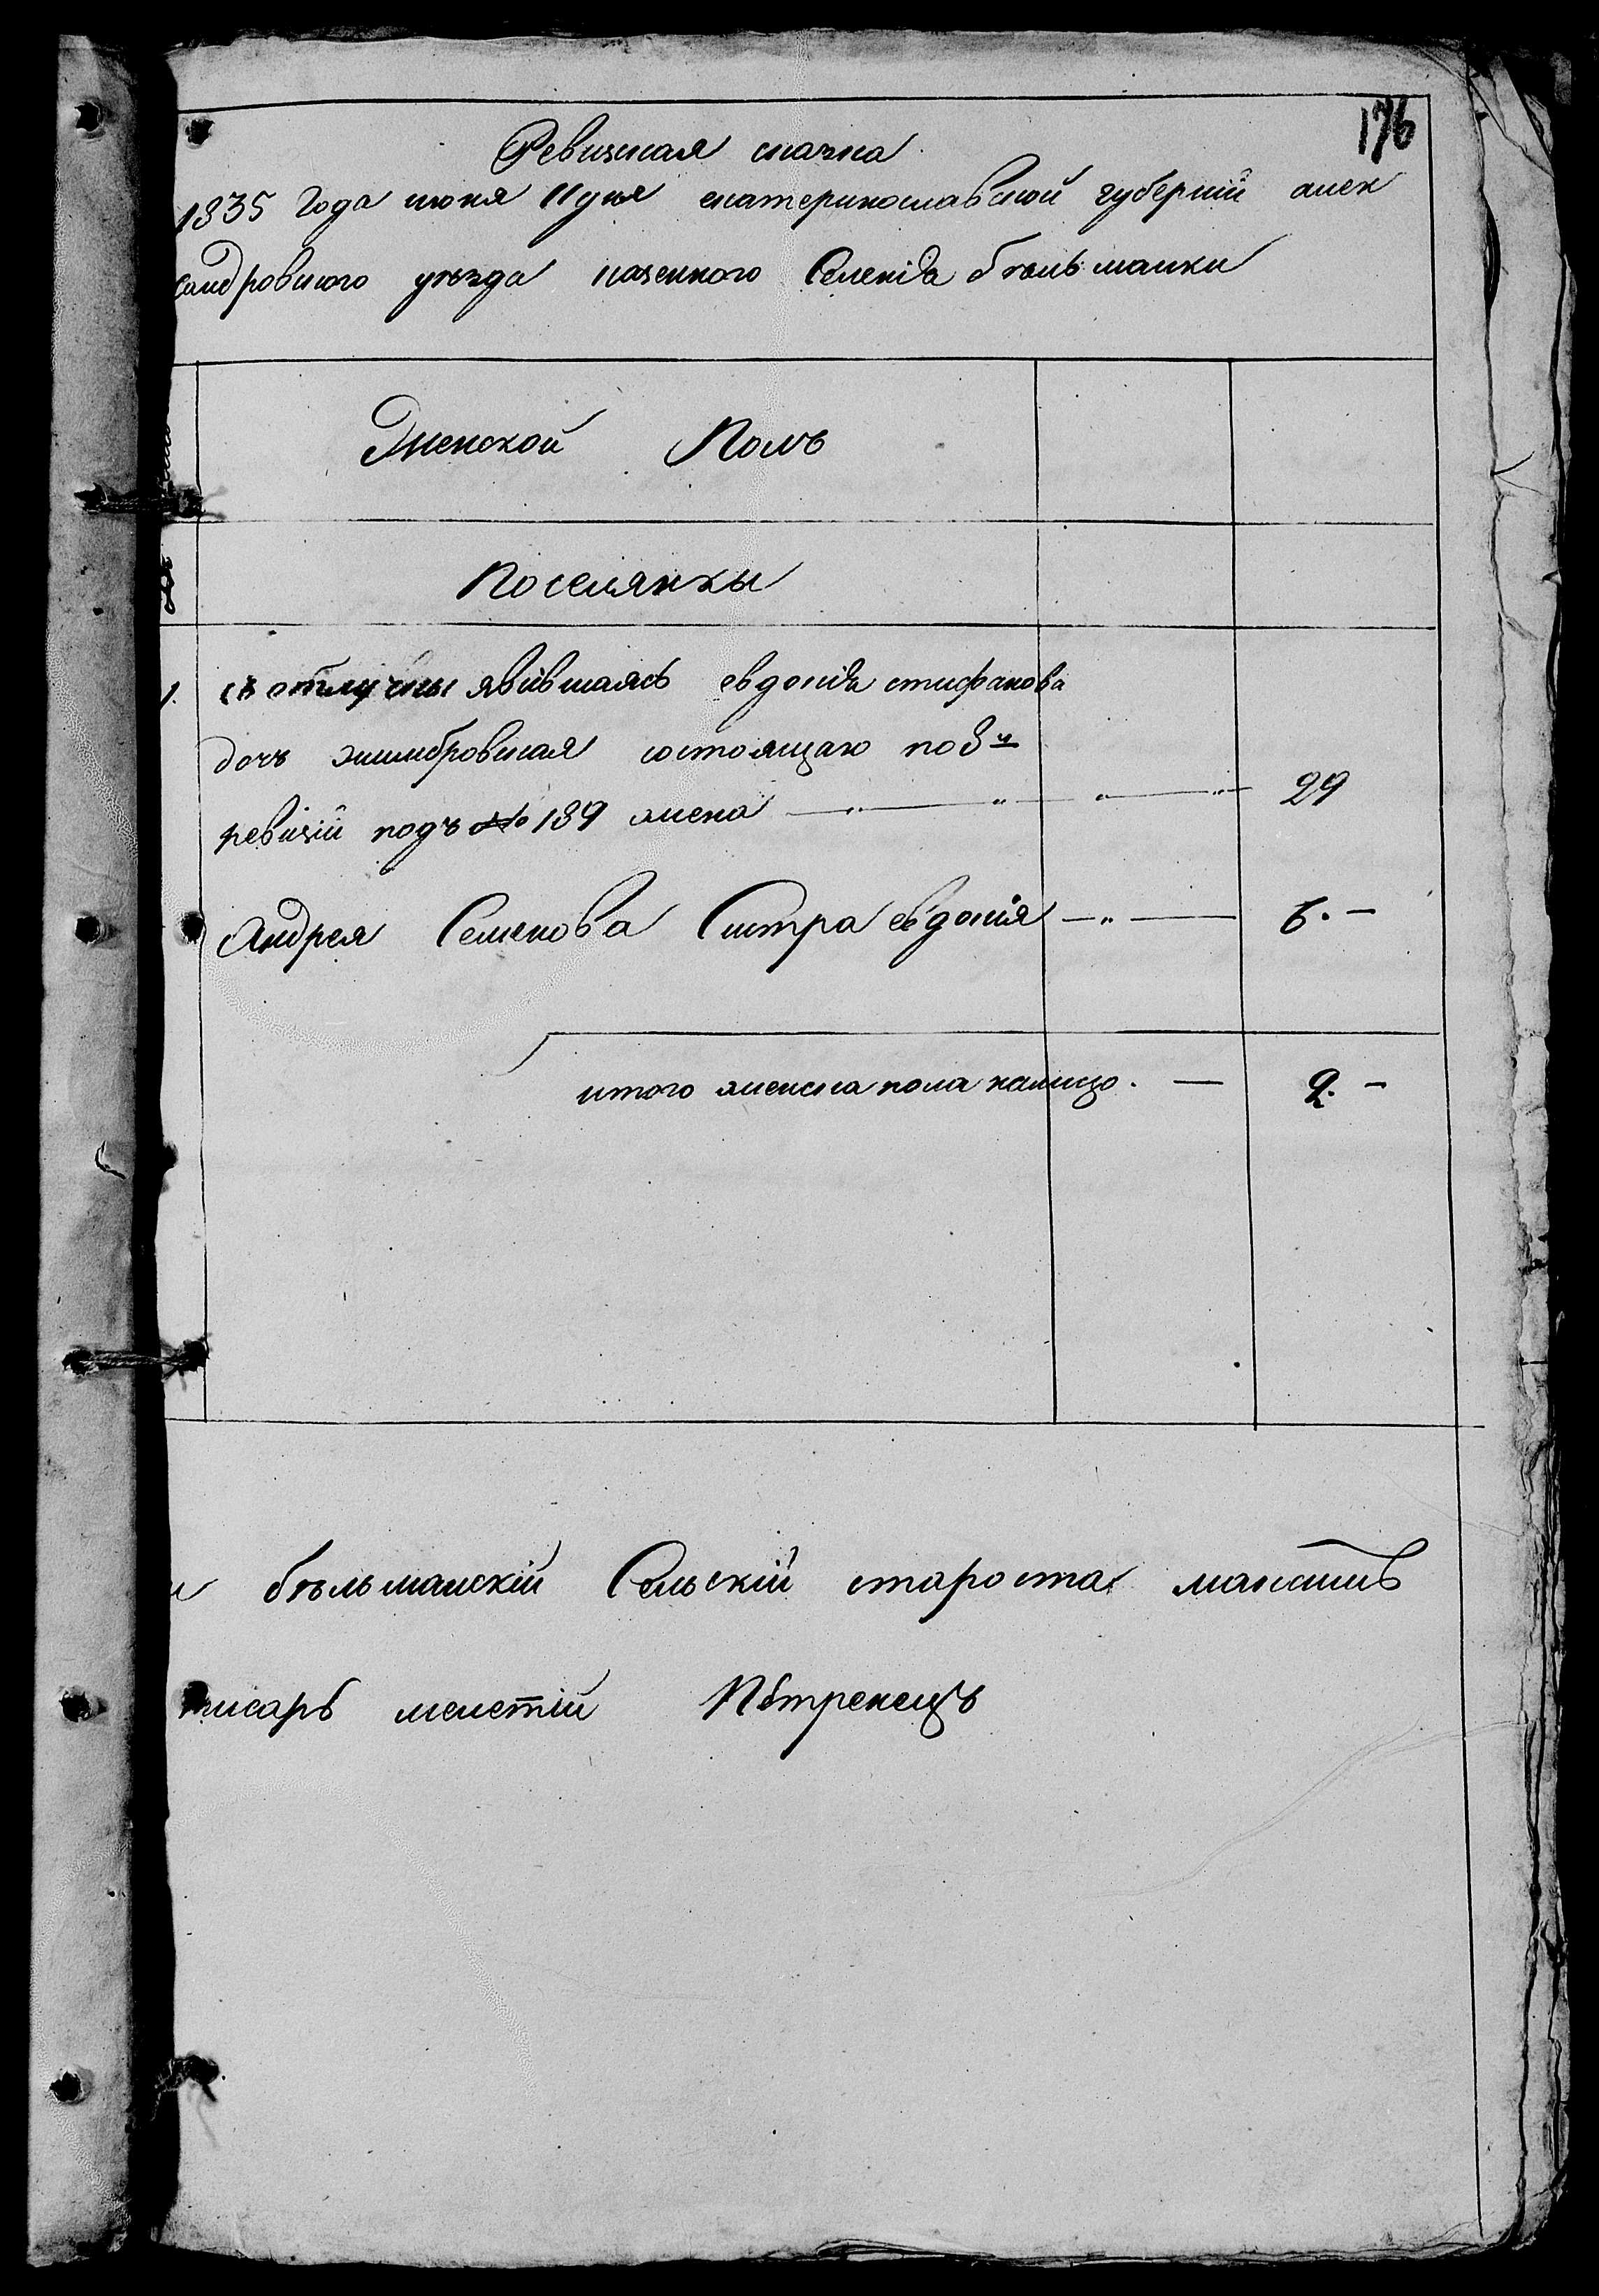 176
Ревизская сказка
1835 года июня 11 дня екатеринославской губерніи алек
сандровского уѣзда казенного Селенія бѣльманки
Женской Полъ
Поселянкы
1. съ отлучкы явівшаясь евдокія стифанова
дочь состоящаго по 8й
ревизіи подъ № 189 жена — „ — „ — „ — „ — 29
Андрея Семенова Систра евдокія — „ — 6. —
итого женска пола налицо. — 2. —
бѣльманскій Сельскій староста максимъ
писарь мелетій Петренецъ